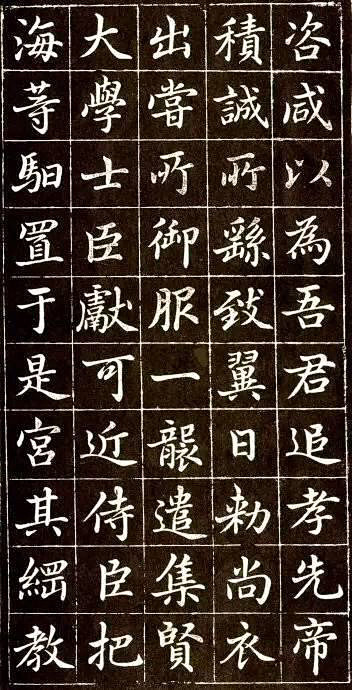 咨咸以為吾君追孝先帝
積誠所繇致翼日勑尚衣
出嘗所御服一襲遣集賢
大學士臣獻可近侍臣把
海等馹置于是宮其繝教